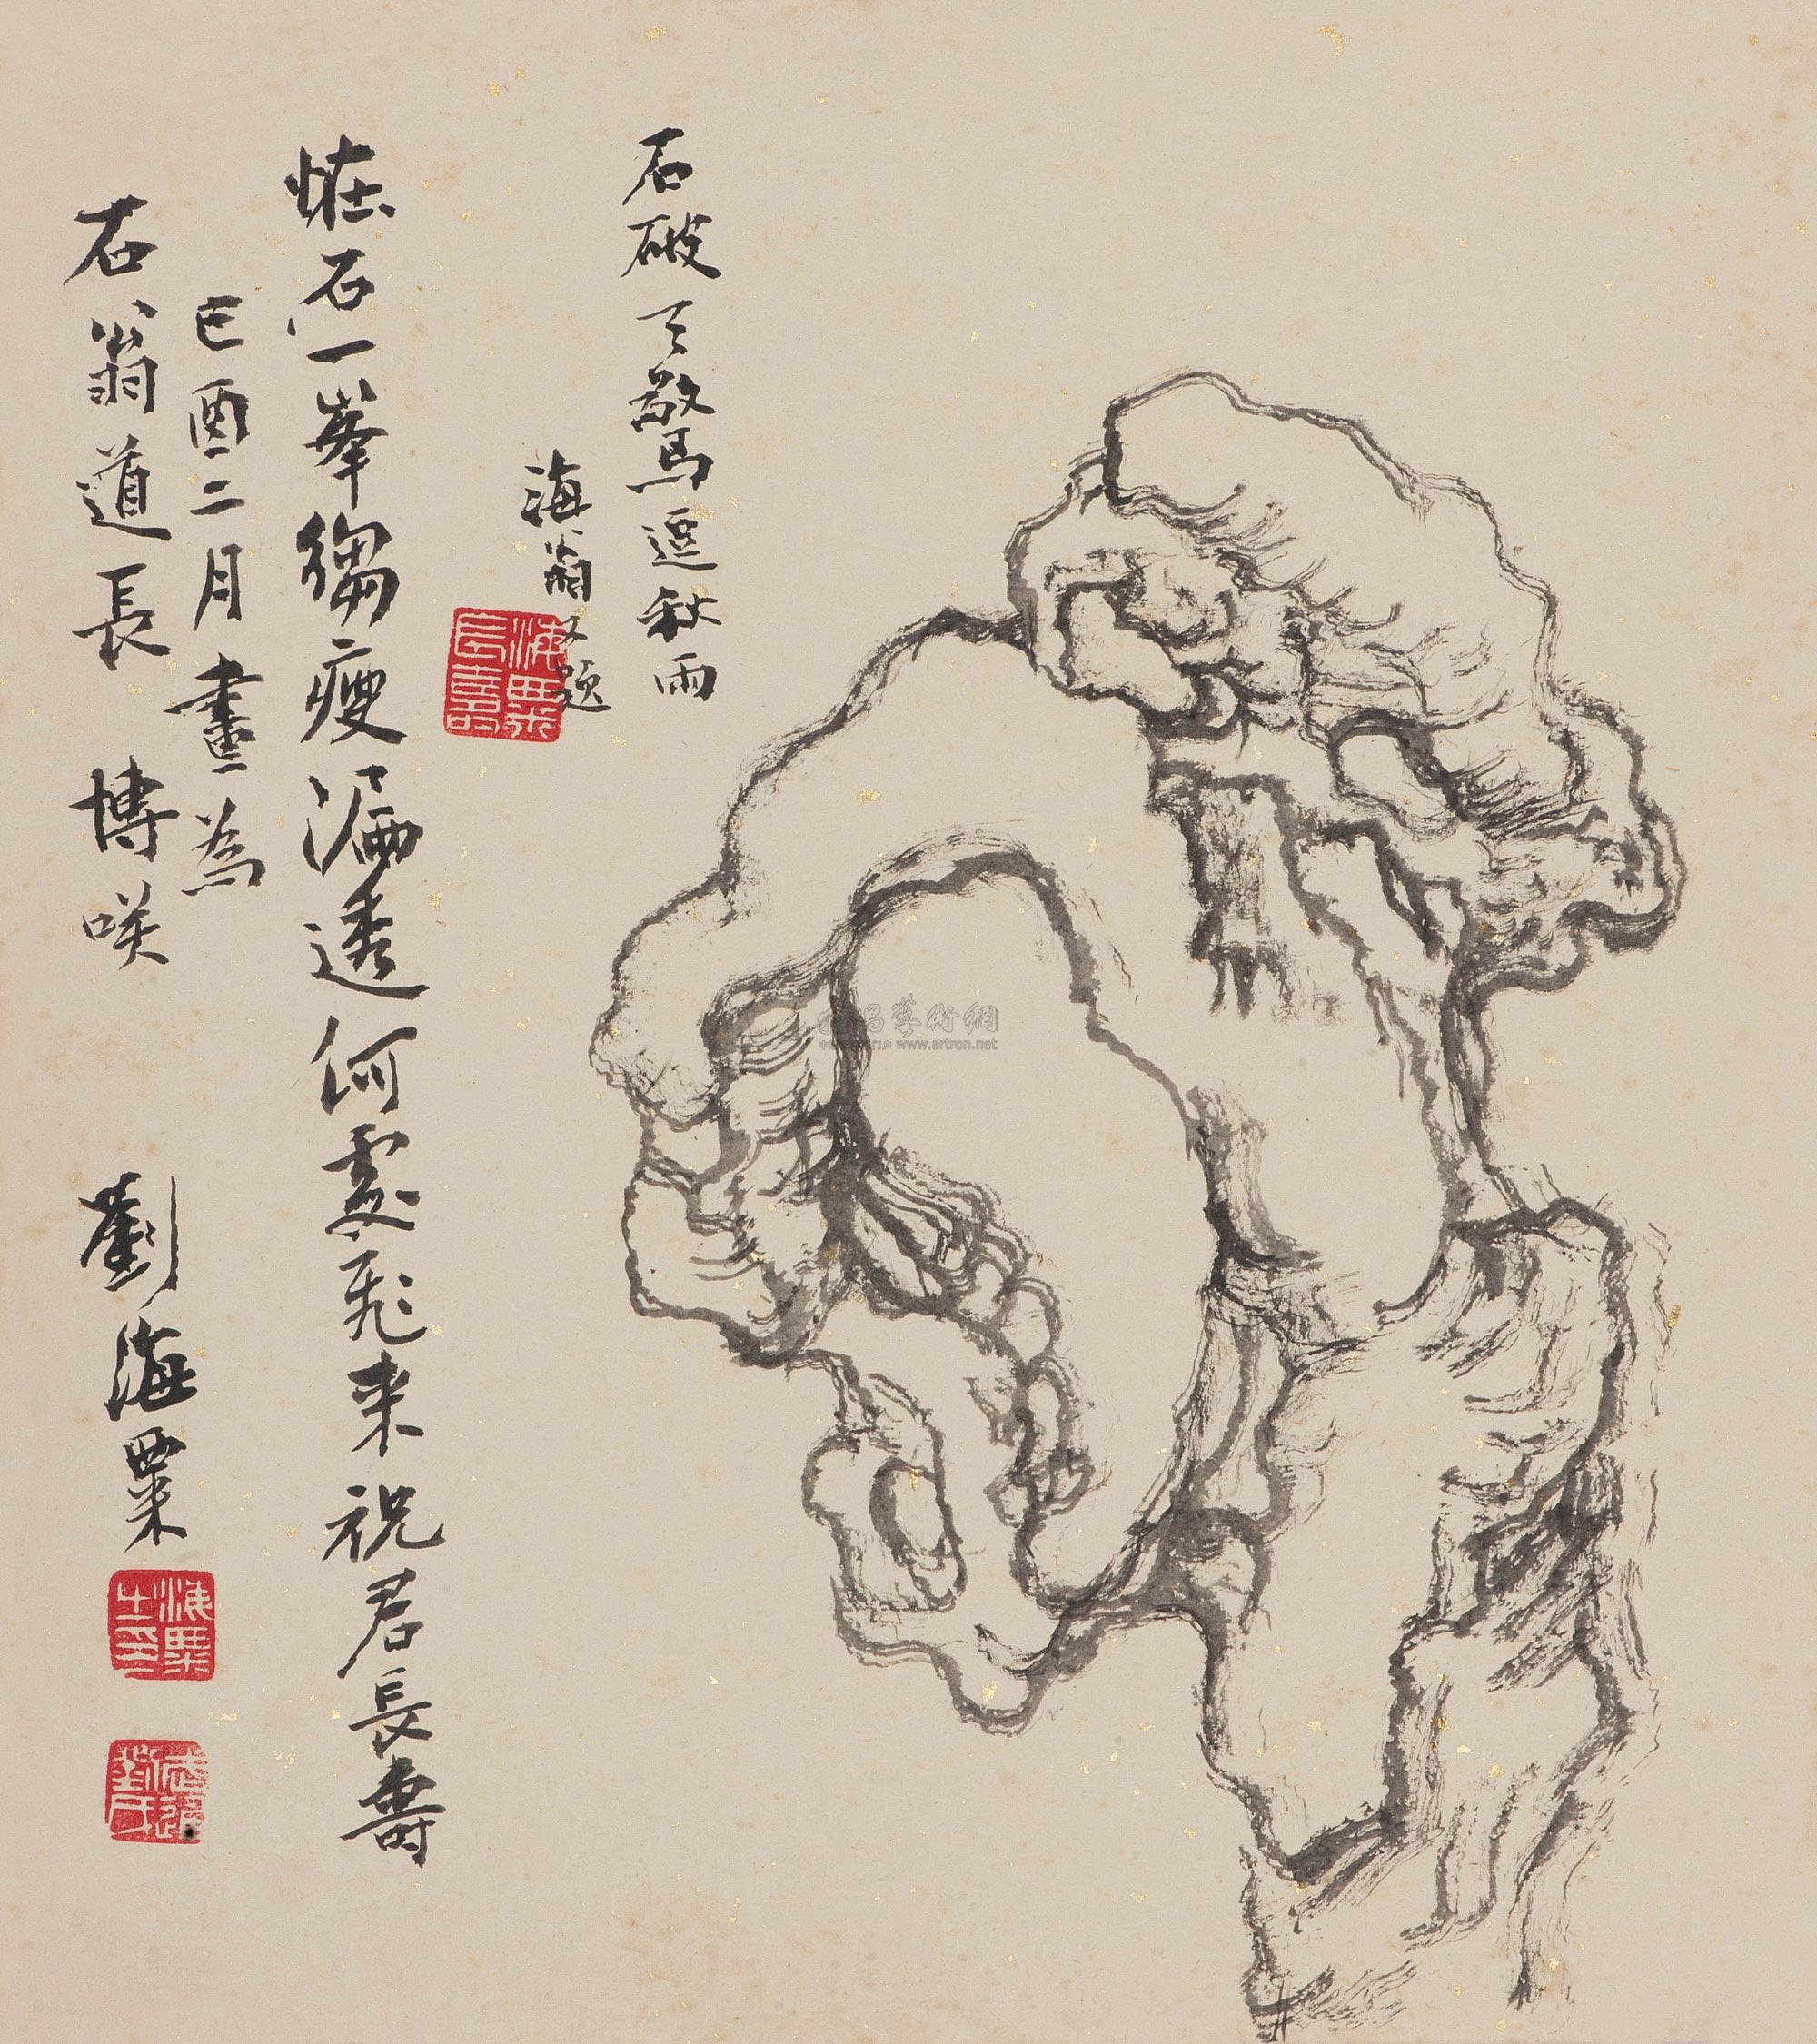 石破天驚逗秋雨
海翁又題
海粟長壽
恠石一峯縐瘦漏透何處飛来祝君長壽
己酉二月畫為
石翁道長 博咲
劉海粟
海粟
www.artron.net